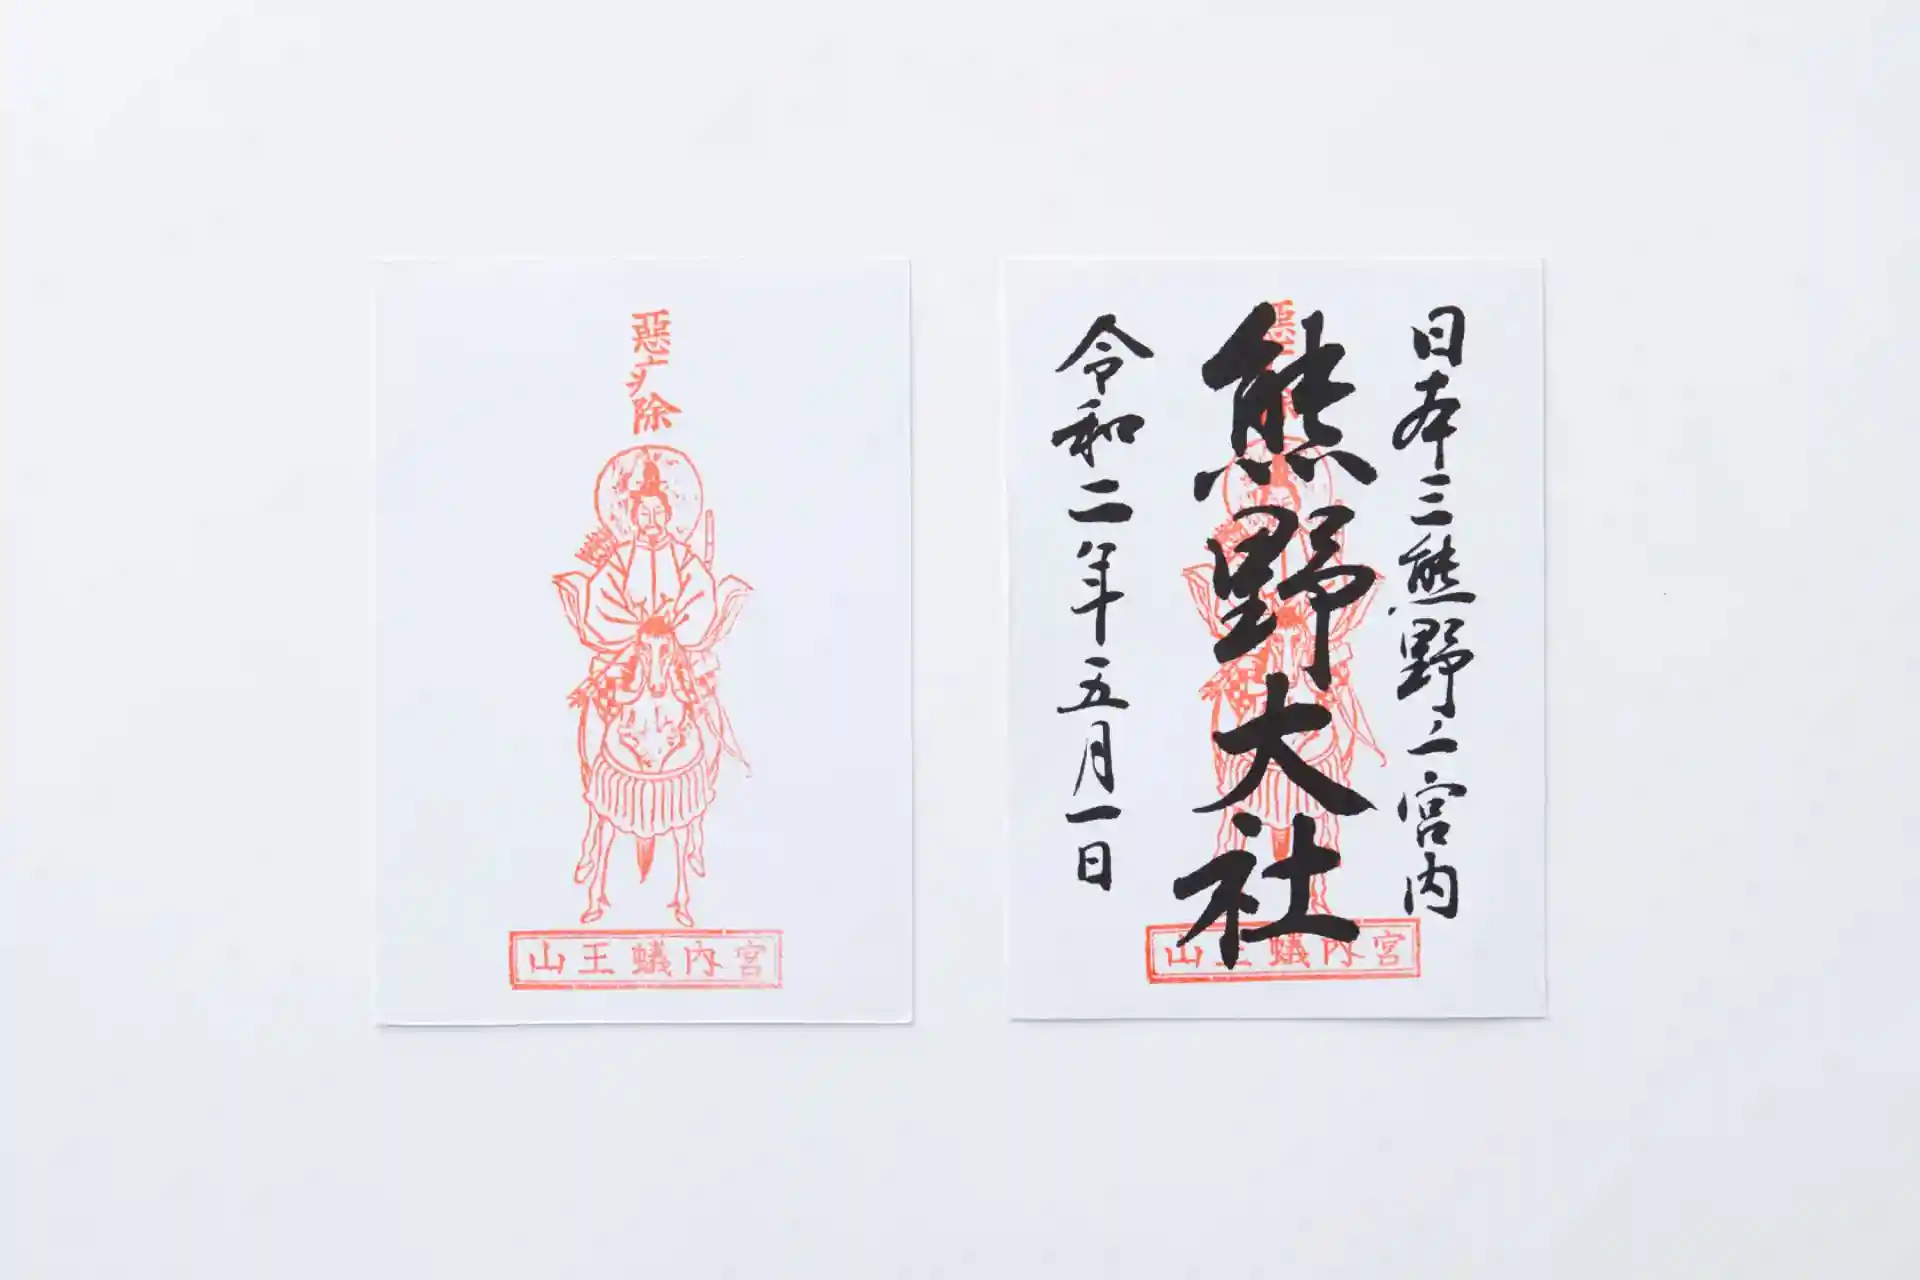 惡疒除
山王蟻内宮
日本三熊野ノ一宮内
熊野大社
令和二年五月一日
惡
山王蟻内宮